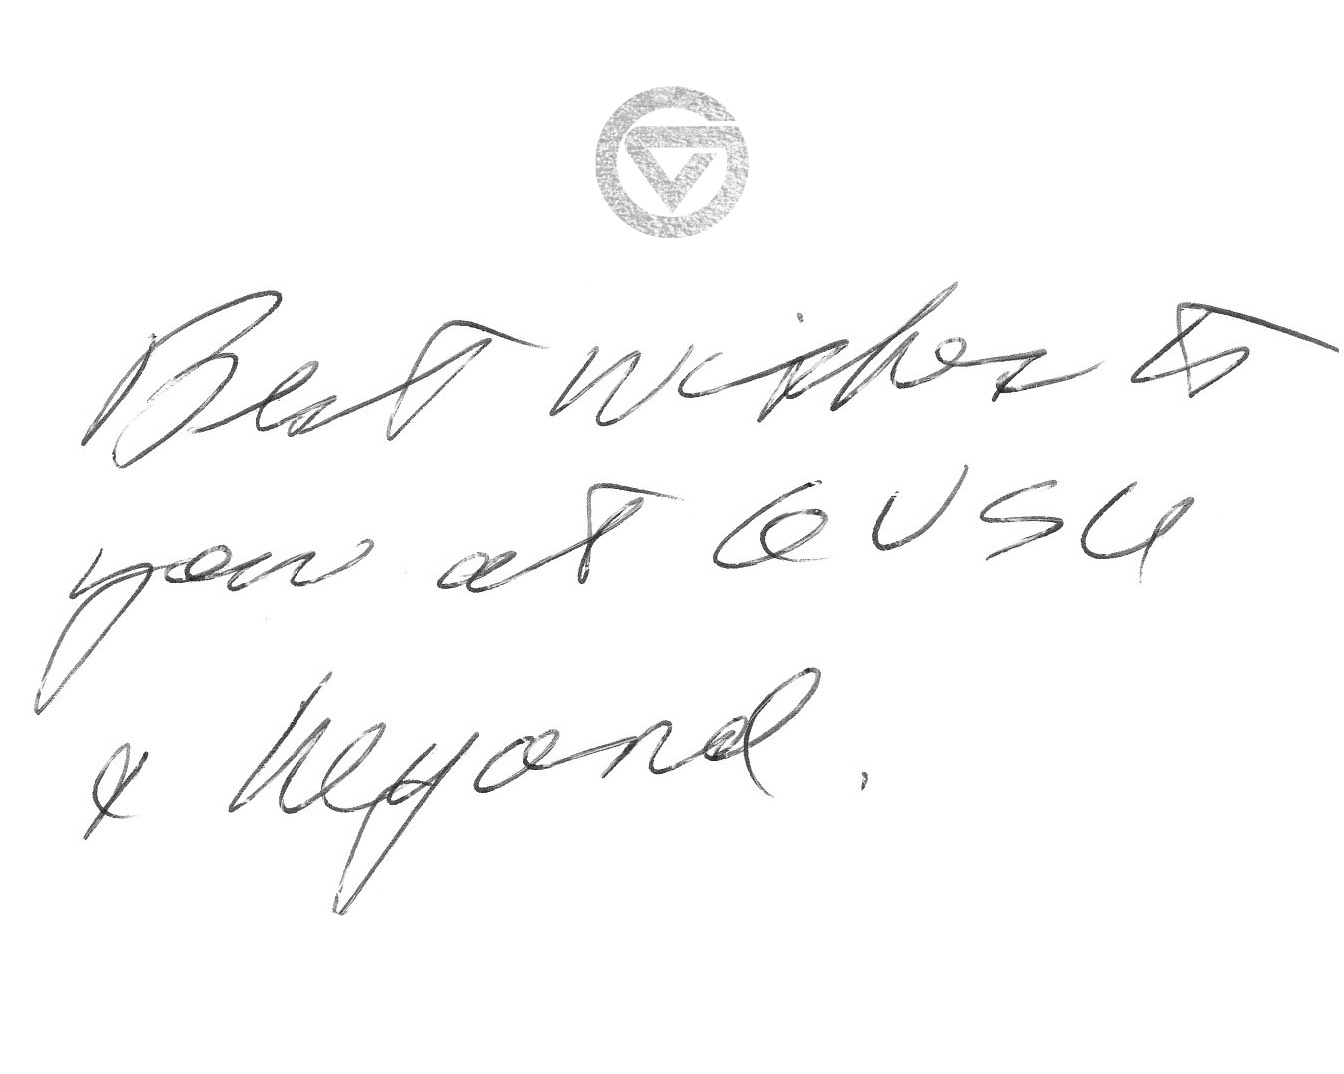 Best wishes to
you at GVSU
& beyond.